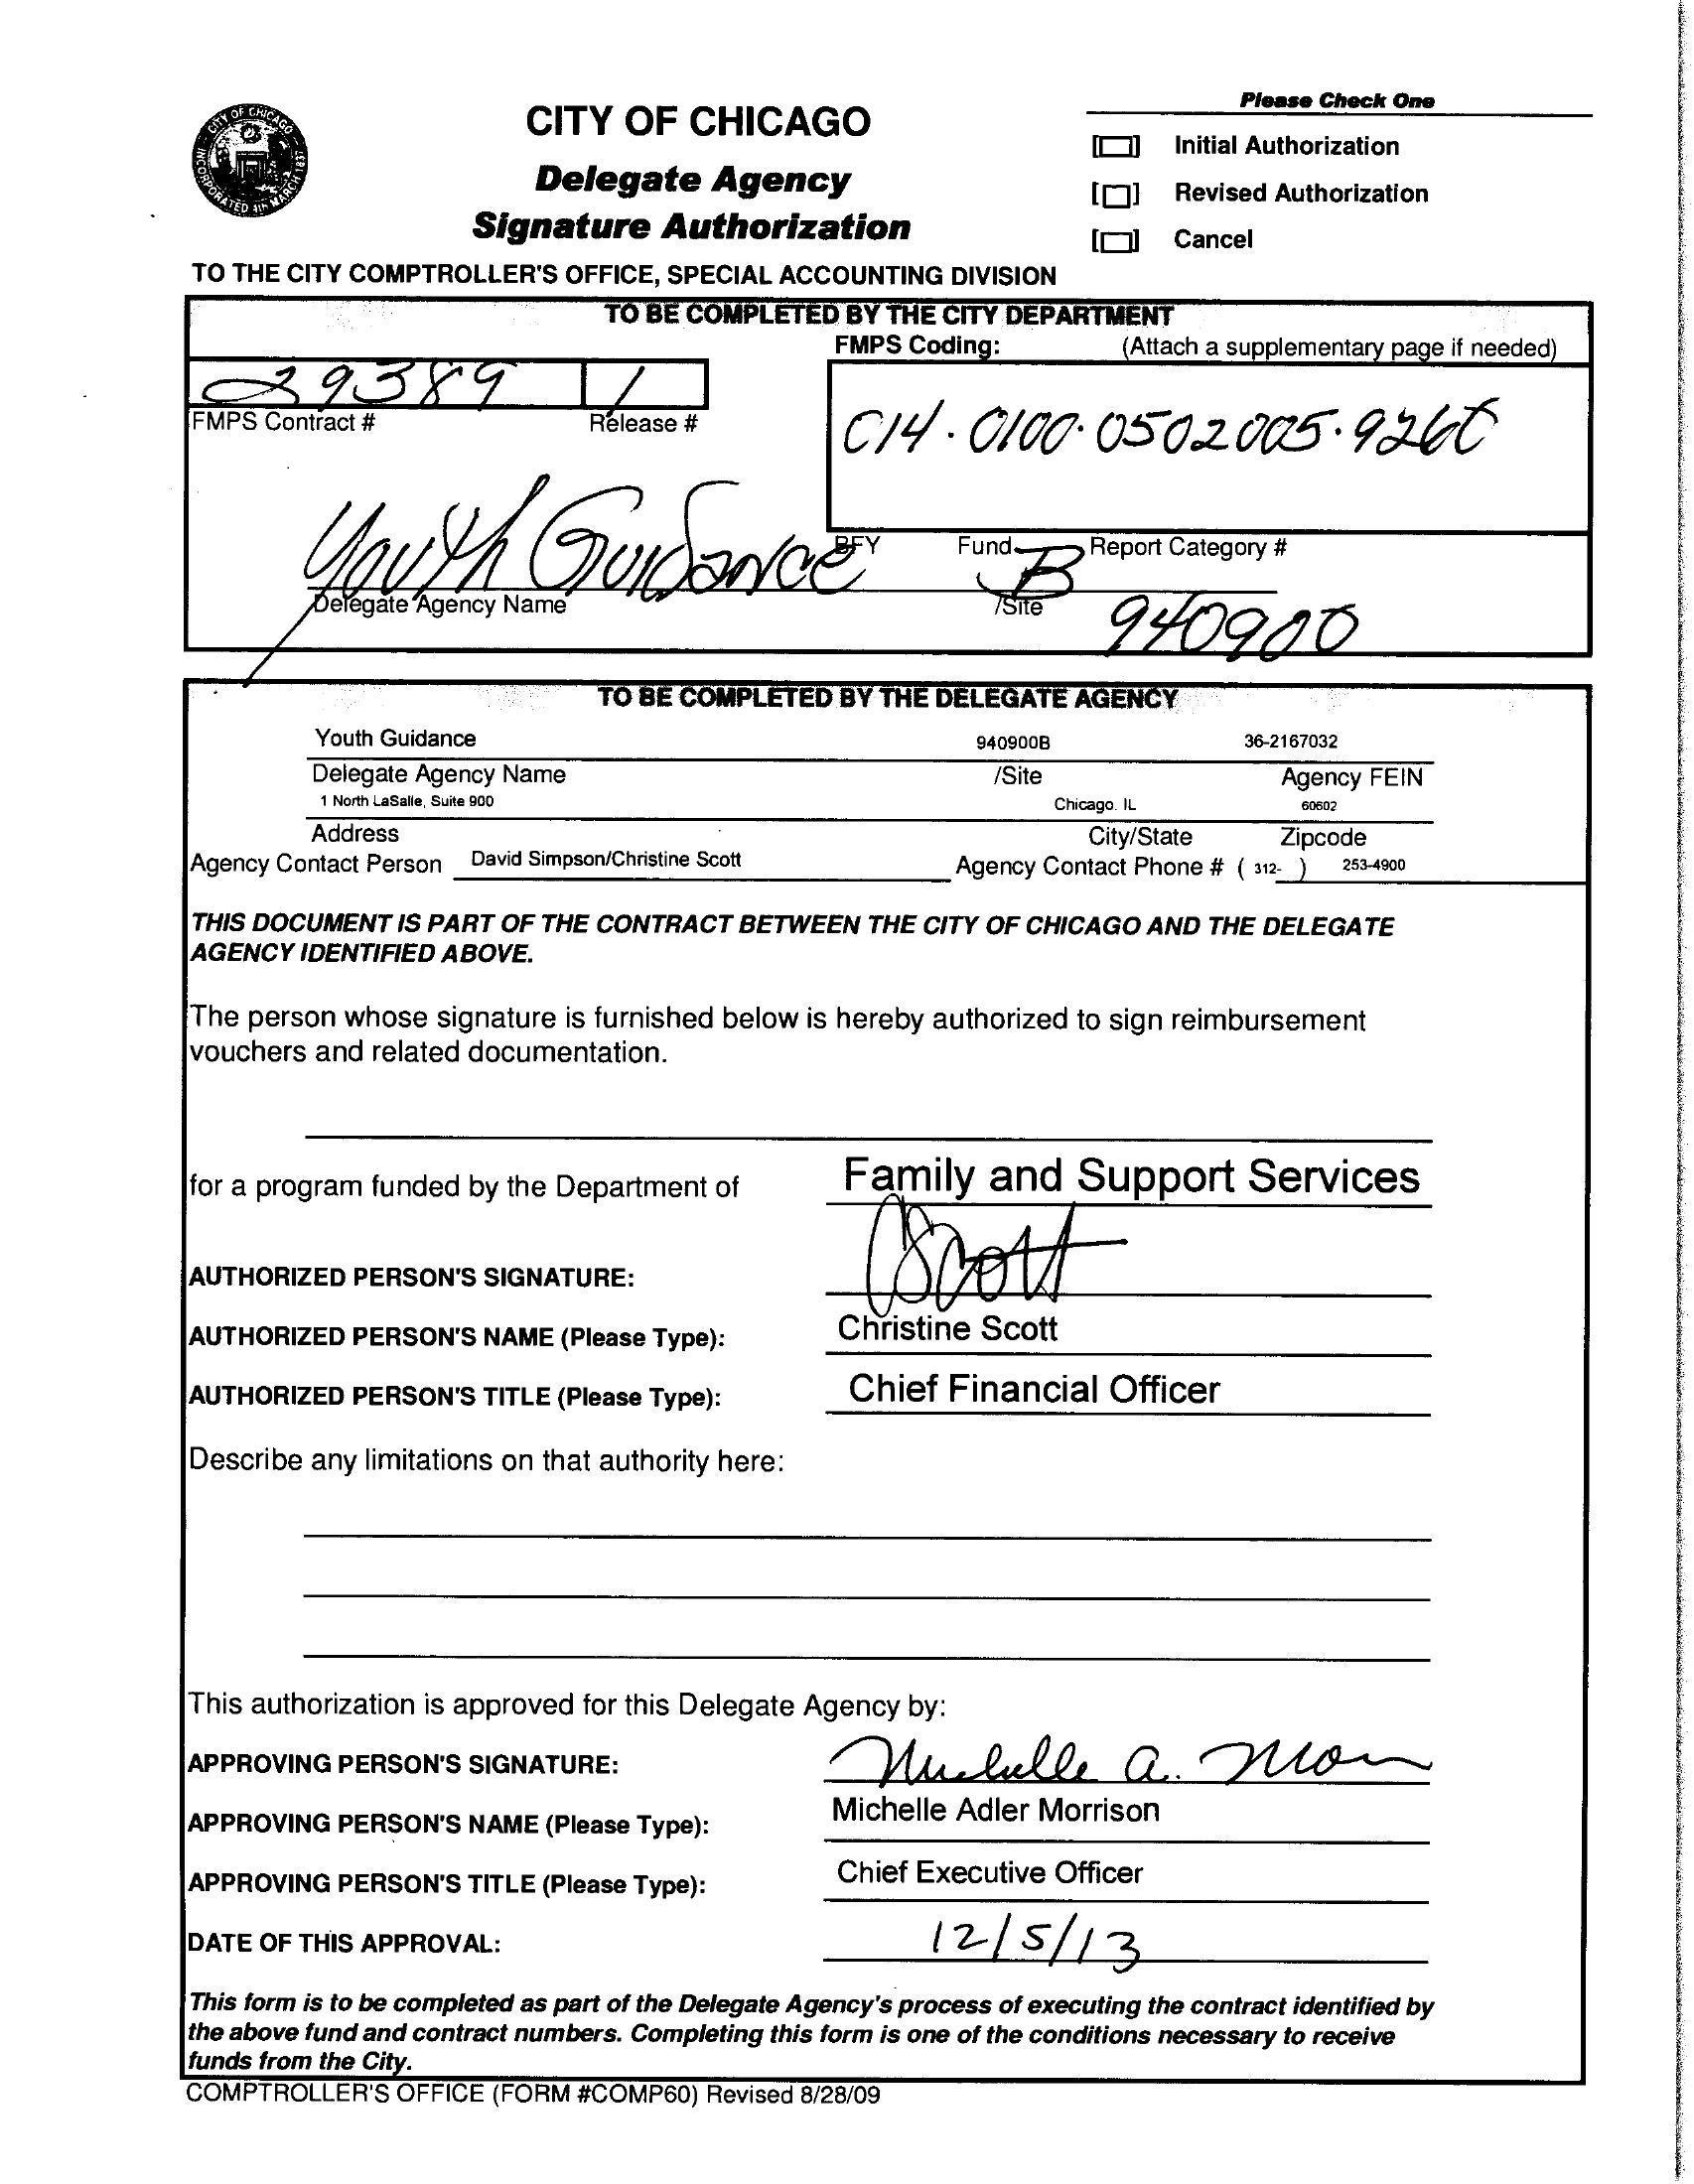 CITY OF CHICAGO
INCORPORATED 4th MARCH 1837
CITY OF CHICAGO
Delegate Agency
Signature Authorization
Please Check One
[☐] Initial Authorization
[☐] Revised Authorization
[☐] Cancel
TO THE CITY COMPTROLLER'S OFFICE, SPECIAL ACCOUNTING DIVISION
TO BE COMPLETED BY THE CITY DEPARTMENT
FMPS Coding: (Attach a supplementary page if needed)
29389 1
FMPS Contract # Release #
C14.0100.0502005.9260
BFY Fund Report Category #
Youth Guidance B 940900
Delegate Agency Name /Site
TO BE COMPLETED BY THE DELEGATE AGENCY
Youth Guidance 940900B 36-2167032
Delegate Agency Name /Site Agency FEIN
1 North LaSalle, Suite 900 Chicago. IL 60602
Address City/State Zipcode
Agency Contact Person David Simpson/Christine Scott Agency Contact Phone # ( 312- ) 253-4900
THIS DOCUMENT IS PART OF THE CONTRACT BETWEEN THE CITY OF CHICAGO AND THE DELEGATE
AGENCY IDENTIFIED ABOVE.
The person whose signature is furnished below is hereby authorized to sign reimbursement
vouchers and related documentation.
for a program funded by the Department of Family and Support Services
AUTHORIZED PERSON'S SIGNATURE: CScott
AUTHORIZED PERSON'S NAME (Please Type): Christine Scott
AUTHORIZED PERSON'S TITLE (Please Type): Chief Financial Officer
Describe any limitations on that authority here:
This authorization is approved for this Delegate Agency by:
APPROVING PERSON'S SIGNATURE: Michelle A. Mor
APPROVING PERSON'S NAME (Please Type): Michelle Adler Morrison
APPROVING PERSON'S TITLE (Please Type): Chief Executive Officer
DATE OF THIS APPROVAL: 12/5/13
This form is to be completed as part of the Delegate Agency's process of executing the contract identified by
the above fund and contract numbers. Completing this form is one of the conditions necessary to receive
funds from the City.
COMPTROLLER'S OFFICE (FORM #COMP60) Revised 8/28/09